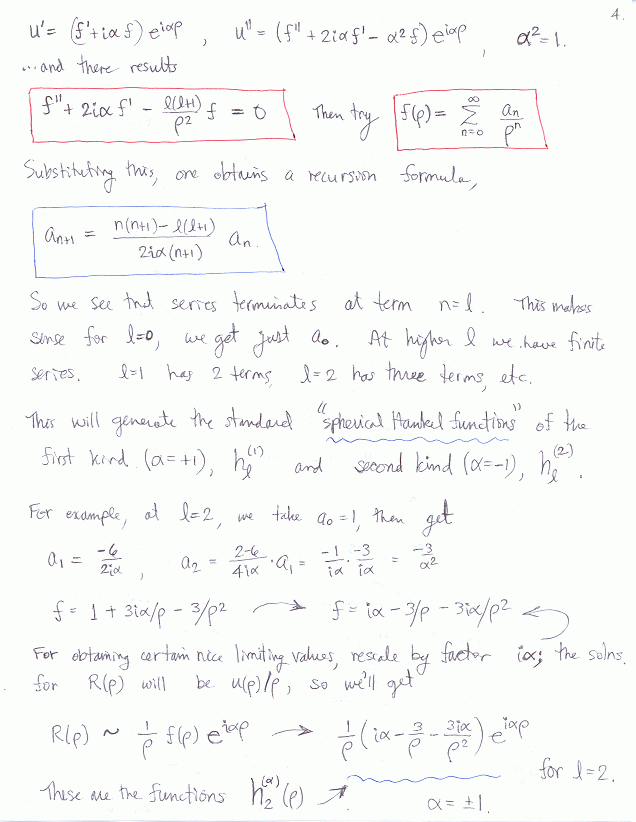 4.
u' = (f' + iα f) e^{iαρ} , u'' = (f'' + 2iα f' − α² f) e^{iαρ} , α² = 1.
...and there results
f'' + 2iα f' − ℓ(ℓ+1)/ρ² f = 0 Then try f(ρ) = Σ_{n=0}^{∞} a_n/ρ^n
Substituting this, one obtains a recursion formula,
a_{n+1} = (n(n+1) − ℓ(ℓ+1))/(2iα(n+1)) a_n.
So we see that series terminates at term n=ℓ. This makes
sense for ℓ=0, we get just a₀. At higher ℓ we have finite
series. ℓ=1 has 2 terms, ℓ=2 has three terms, etc.
This will generate the standard "spherical Hankel functions" of the
first kind (α=+1), h_ℓ^{(1)} and second kind (α=−1), h_ℓ^{(2)}.
For example, at ℓ=2, we take a₀=1, then get
a₁ = −6/(2iα) , a₂ = (2−6)/(4iα) · a₁ = −1/(iα) · −3/(iα) = −3/α²
f = 1 + 3iα/ρ − 3/ρ² → f = iα − 3/ρ − 3iα/ρ²
For obtaining certain nice limiting values, rescale by factor iα; the solns.
for R(ρ) will be u(ρ)/ρ, so we'll get
R(ρ) ~ 1/ρ f(ρ) e^{iαρ} → 1/ρ (iα − 3/ρ − 3iα/ρ²) e^{iαρ}
for ℓ=2.
These are the functions h₂^{(α)}(ρ) ↗ α = ±1.